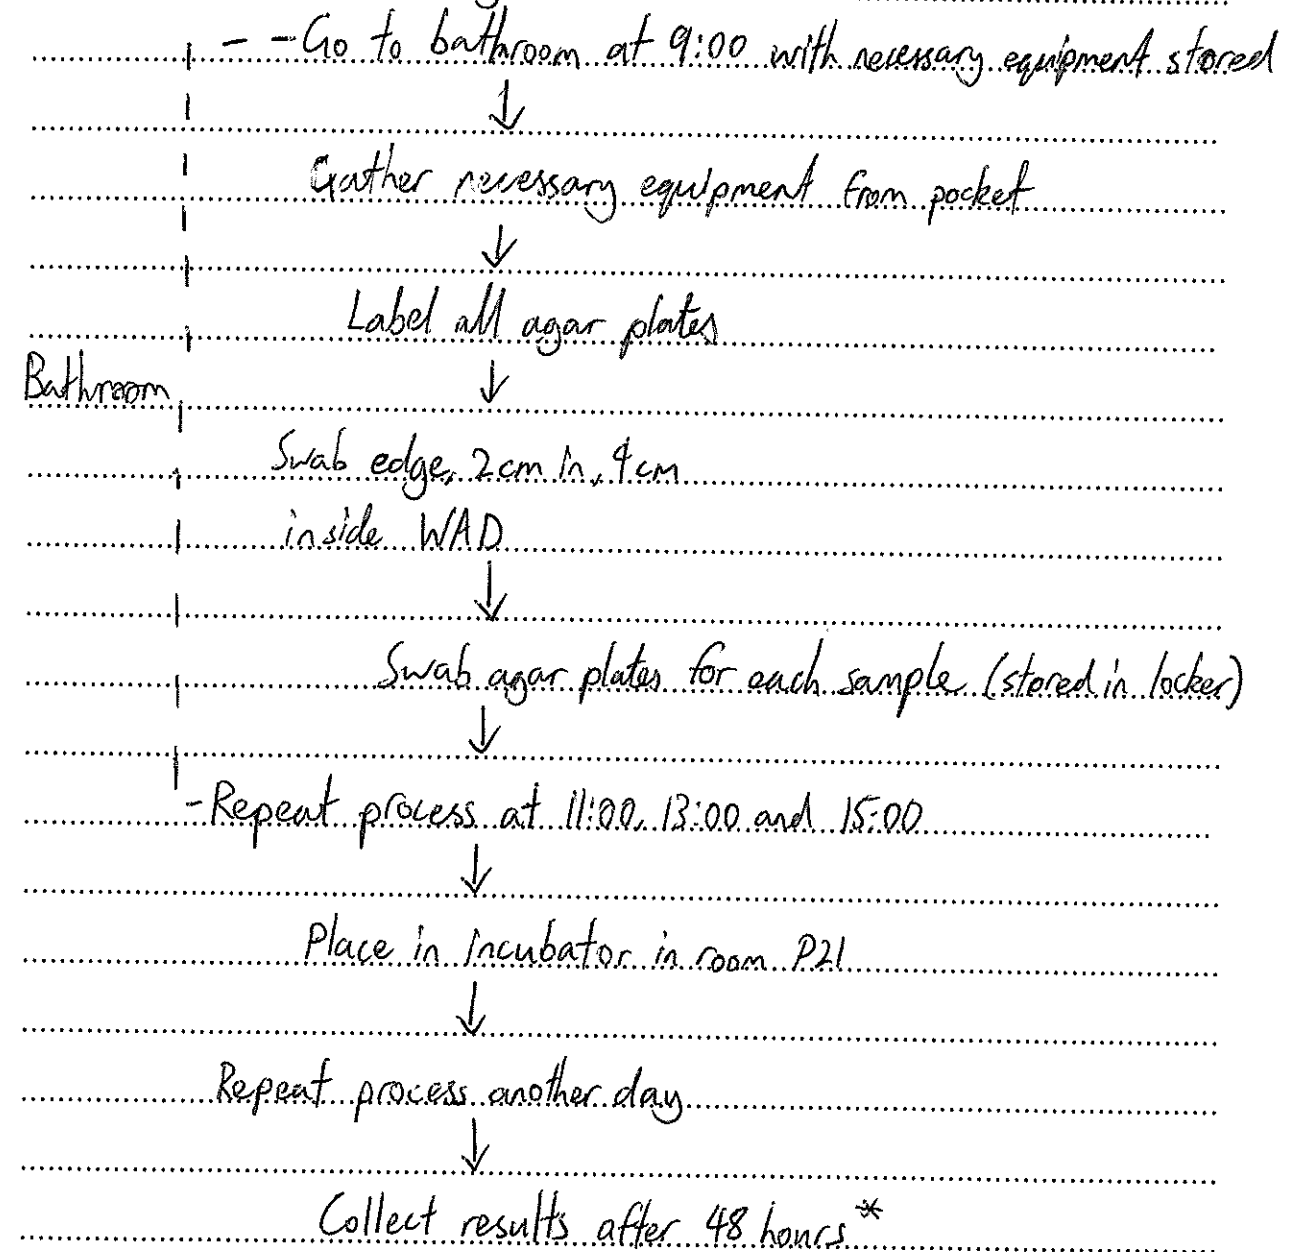 - -Go to bathroom at 9:00 with necessary equipment stored
Gather necessary equipment from pocket
Label all agar plates
Bathroom
Swab edge, 2cm in, 4cm
inside WAD
Swab agar plates for each sample (stored in locker)
-Repeat process at 11:00, 13:00 and 15:00
Place in incubator in room P21
Repeat process another day
Collect results after 48 hours*